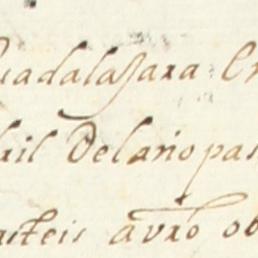 uadalaxara en
bril Del año pas
asteis avro ob